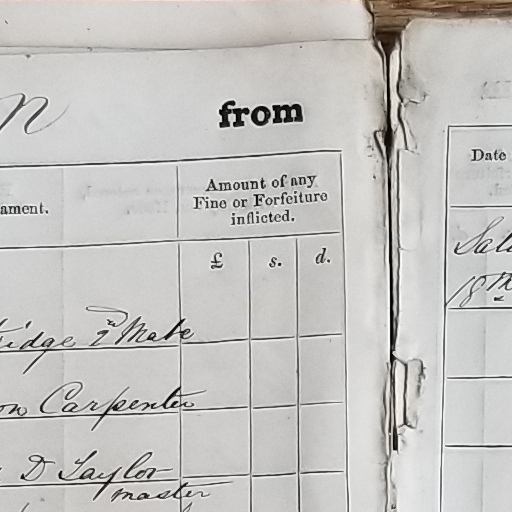 from
Amount of any
Fine or Forfeiture
inflicted.
ament.
£ s. d.
idge 2nd Mate
on Carpenter
D Taylor
master
Date
18th